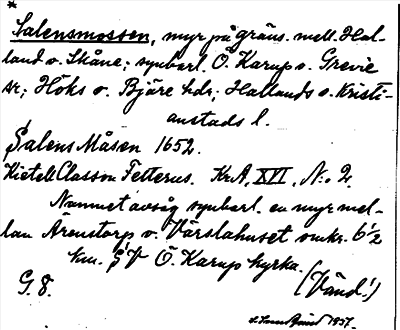 *
Salensmossen, myr på gräns. mell. Hal-
land o. Skåne; synbarl. Ö. Karup o. Grevie
sr; Höks o. Bjäre hds; Hallands o. Kristi-
anstads l.
Salens Måsen 1652.
Kietell Classon Felterus. KrA, XVI, N:o 2.
Namnet avsåg synbarl. en myr mel-
lan Ärenstorp o. Värslahuset omkr. 6 1/2
km. SV Ö. Karup kyrka.
(Vänd!)
G 8.
1937.